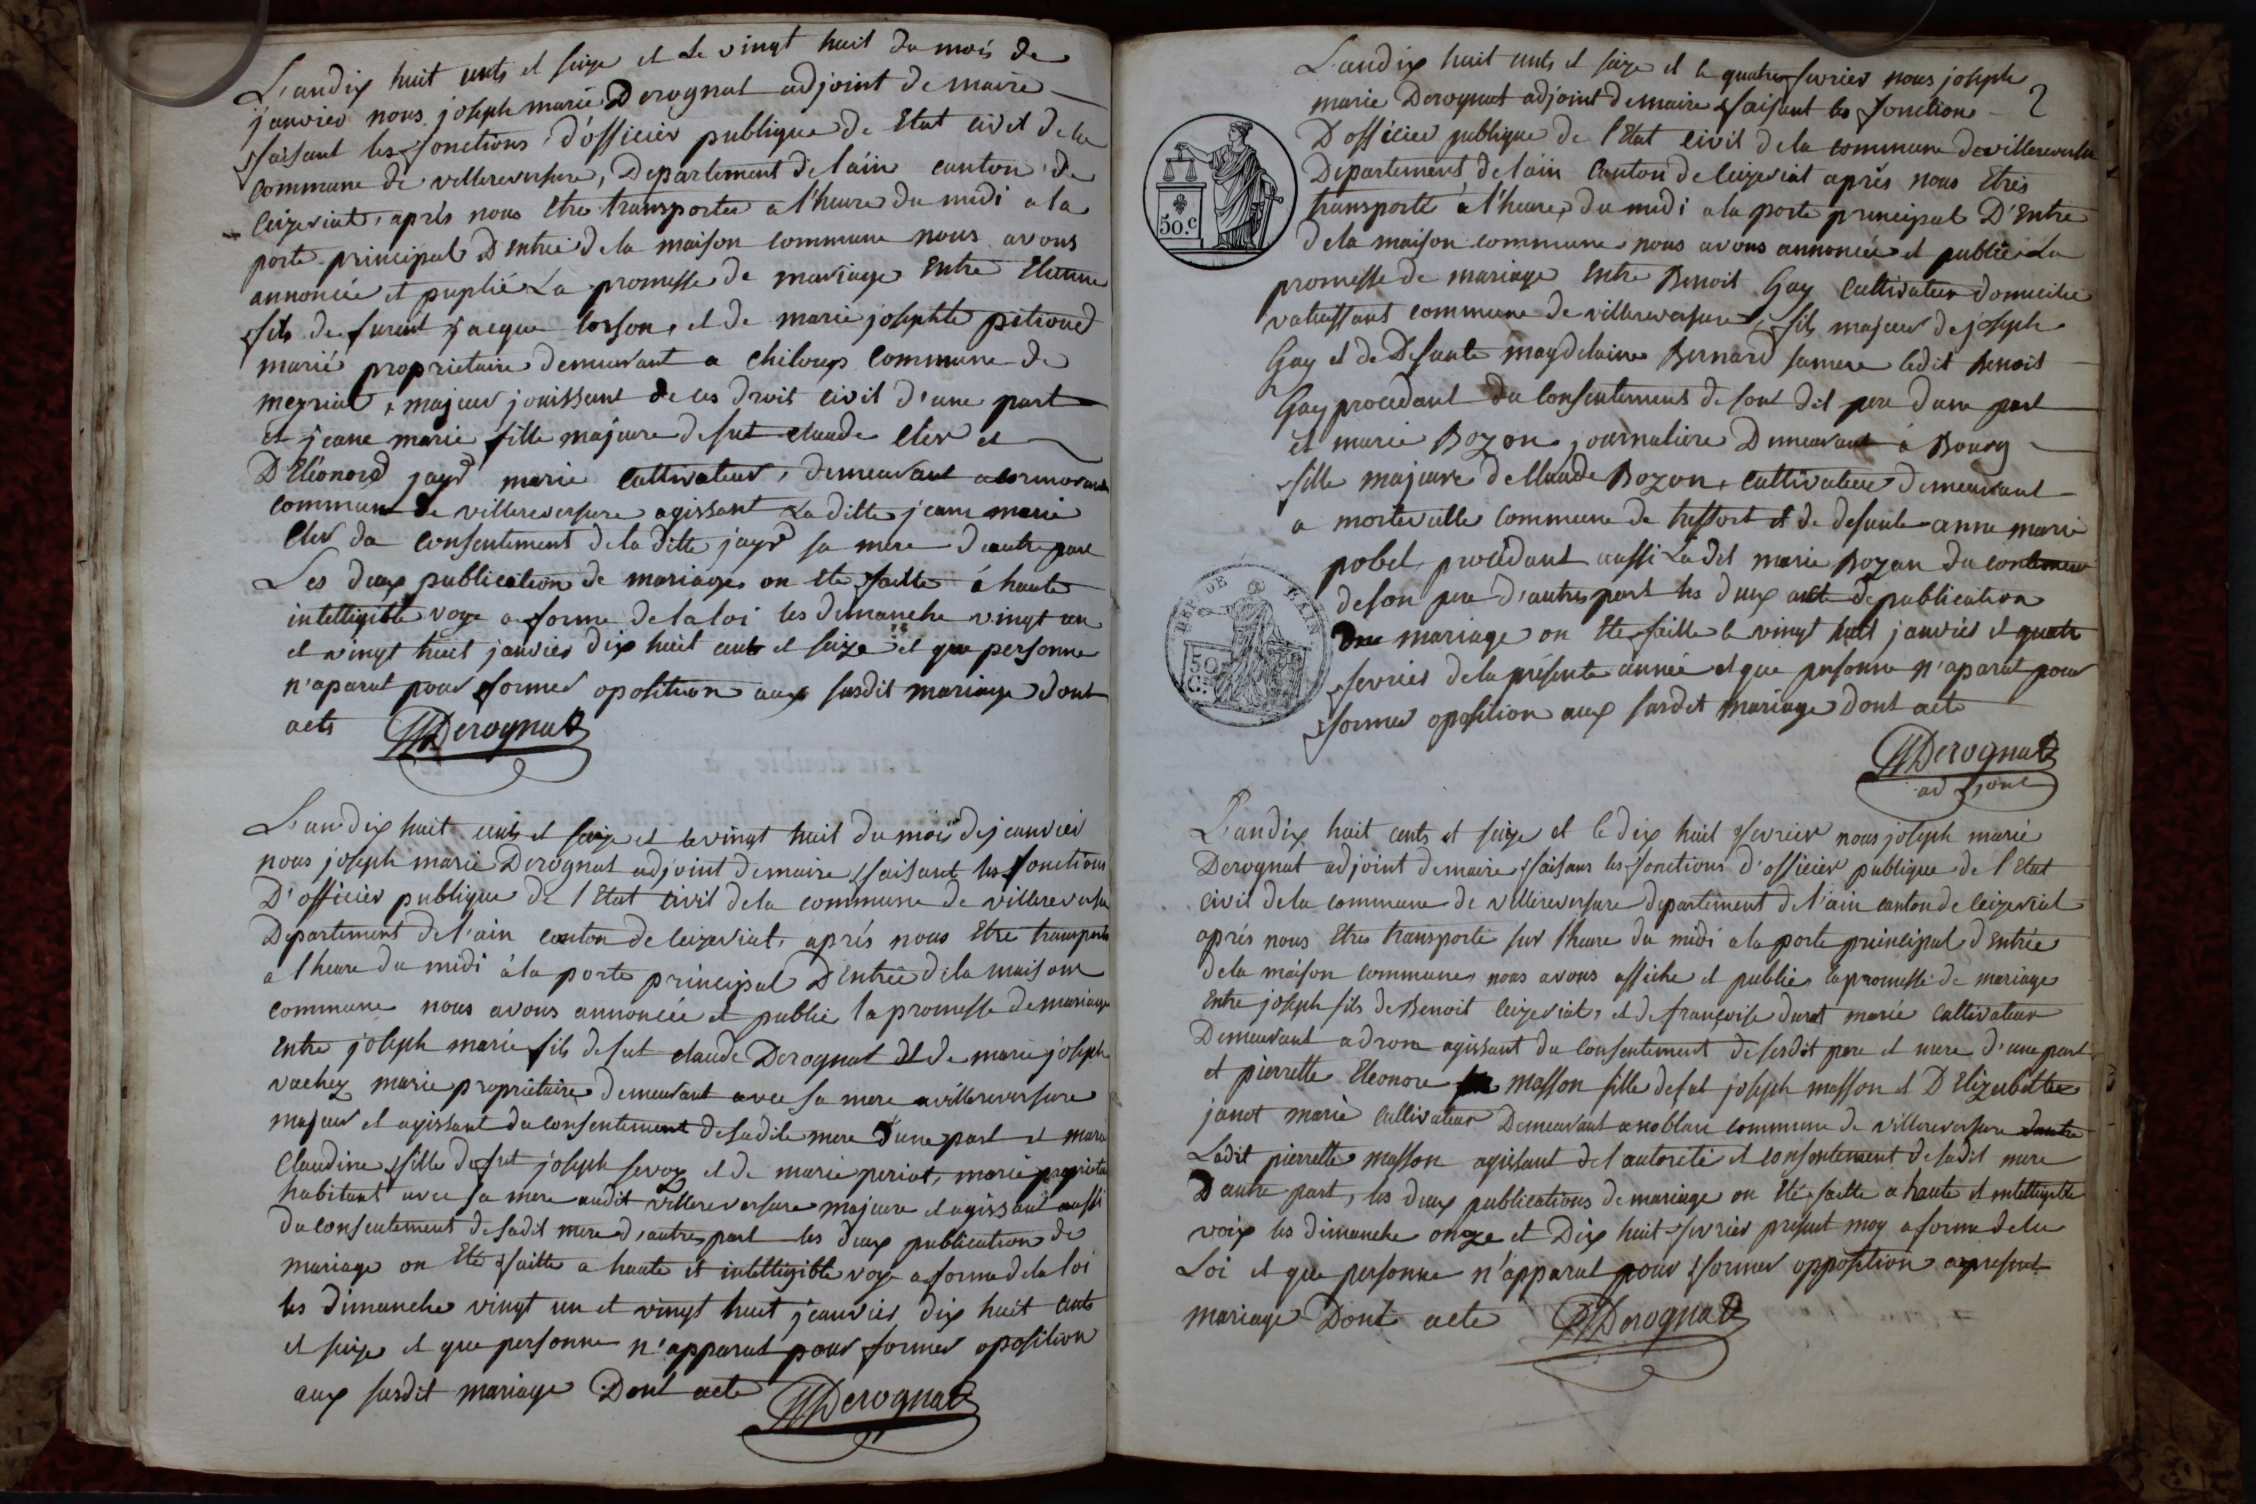 L'an dix huit cents et seize et le vingt huit du mois de
janvier nous joseph marie Derognat adjoint de maire
faisant les fonctions d'officier publique de Etat civil de la
commune de villereversure, Departement de l'ain canton de
Ceizeriat, aprés nous etre transporter a l'heure du midi a la
porte principal D'entreé de la maison commune nous avons
annonceé et puplié La promesse de mariage Entre Etienne
fils de furent jacque et de marie josephte
marié propriétaire demeurant a chiloup commune de
meyriat, majeur jouissant de ces droit civil d'une part
et jeane marie fille majeure de fut claude Cler et
D'Eléonord jayr marie cultivateur, demeurant a cormorand
commune de villereversure agissant La ditte jeane marie
Cler du consentement de la ditte jayr sa mere d'autre part
Les deux publication de mariage on été faitte á haute
intelligible voye a forme de la loi les dimanche vingt un
et vingt huit janvier dix huit cent et seize et que personne
n'aparut pour former oposition aux susdit mariage dont
acte JMDerognat
L'an dix huit cents et seize et le vingt huit du mois de jeanvier
nous joseph marie Derognat adjoint de maire faisant les fonctions
D'officier publique de l'Etat civil de la commune de villereversure
Departement de l'ain canton de ceizeriat, aprés nous Etre transporte
a l'heure du midi á la porte principal D'entreé de la maison
commune nous avons annonceé et publié la promesse de mariage
Entre joseph marie fils de fut claude Derognat et de marie joseph
vachez marie propriétaire demeurant avec sa mere a villereversure
majeur et agissant du consentement de sadite mere d'une part et marie
Claudine fille de fut joseph sevoz et de marie periat, marié propriétaire
habitant avec sa mere audit villereversure majeure et agissant aussi
du consentement de sadit mere d'autre part les deux publication de
mariage on eté faitte a haute et intelligible voye a forme de la loi
les dimanche vingt un et vingt huit jeanvier dix huit cents
et seize et que personne n'apparut pour former oposition
aux susdit mariage Dont acte JMDerognat
L'an dix huit cents et seize et le quatre fevrier nous joseph
marie Derognat adjoint de maire faisant les fonctions 2
D'officier publique de l'Etat civil de la commune de villereversure
Departement de l'ain Canton de Ceizeriat aprés nous Etres
transporté a l'heure du midi a la porte principal D'Entre
50.c
de la maison commune nous avons annonceé et publié La
promesse de mariage Entre Benoit Gay Cultivateur domicilié
commune de villereversure, fils majeur de joseph
Gay et de Defunte magdelaine Bernard sa mere ledit Benoit
Gay procedant du consentement de sont dit pere d'une part
et marie Bozon journaliere Demeurant á Bourg
fille majeure de Claude Bozon, cultivateur demeurant
a commune de treffort et de defunte anne marie
pobel, procedant aussi La dit marie Bozon du
de son pere d'autre part les deux acte de publication
mariage on ete faitte le vingt huit janvier et quatre
50
C.
fevrier de la présente année et que personne n'aparut pour
former oposition aux susdit mariage Dont acte
JMDerognat
adjoint
L'an dix huit cents et seize et le dix huit fevrier nous joseph marie
Derognat adjoint de maire faisans les fonctions d'officier publique de l'Etat
civil de la commune de villereversure departement de l'ain canton de ceizeriat
aprés nous Etres transporté sur l'heure du midi a la porte principal d'entrée
de la maison commune nous avons affiché et publié la promesse de mariage
Entre joseph fils de Benoit Ceizeriat, et de françoise durat marié cultivateur
Demeurant a drom agissant du consentement de sesdit pere et mere d'une part
et pierrette Eleonore masson fille de fut joseph masson et D'Elizabette
janot marié cultivateur Demeurant a noblan commune de villereversure
Ladit pierrette masson agissant de l'autorité et consentement de sadit mere
D'autre part, les deux publications de mariage on été faitte a haute et intelligible
voix les dimanche onze et Dix huit fevrier présent moy a forme de la
Loi et que personne n'apparut pour former opposition au présent
mariage Dont acte JMDerognat